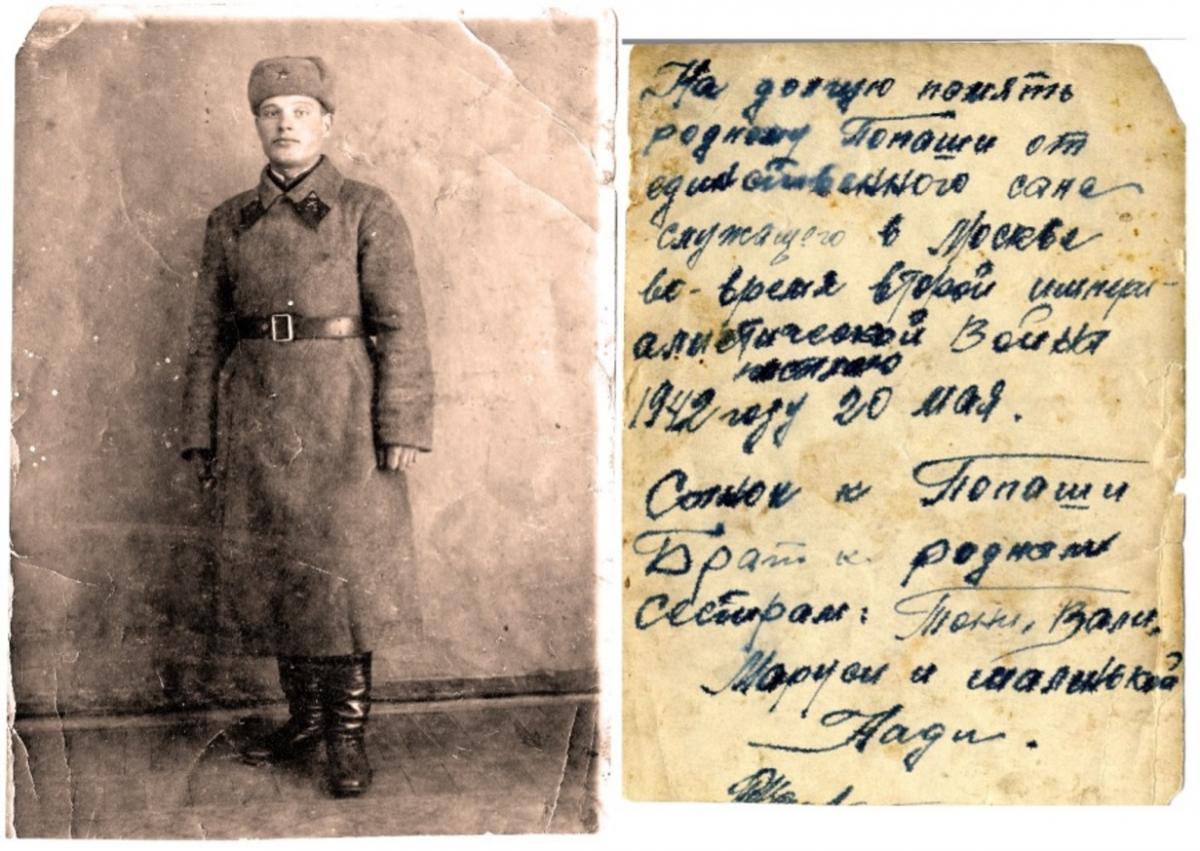 На долгую помять
родному Попаши от
единственного сана
служащего в Москве
во-время второй импери-
алистической Войны
посылаю
1942 году 20 мая.
Сынок к Попаши
Брат к родным
сестирам: Тони, Вали,
Маруси и малинькой
Нади.